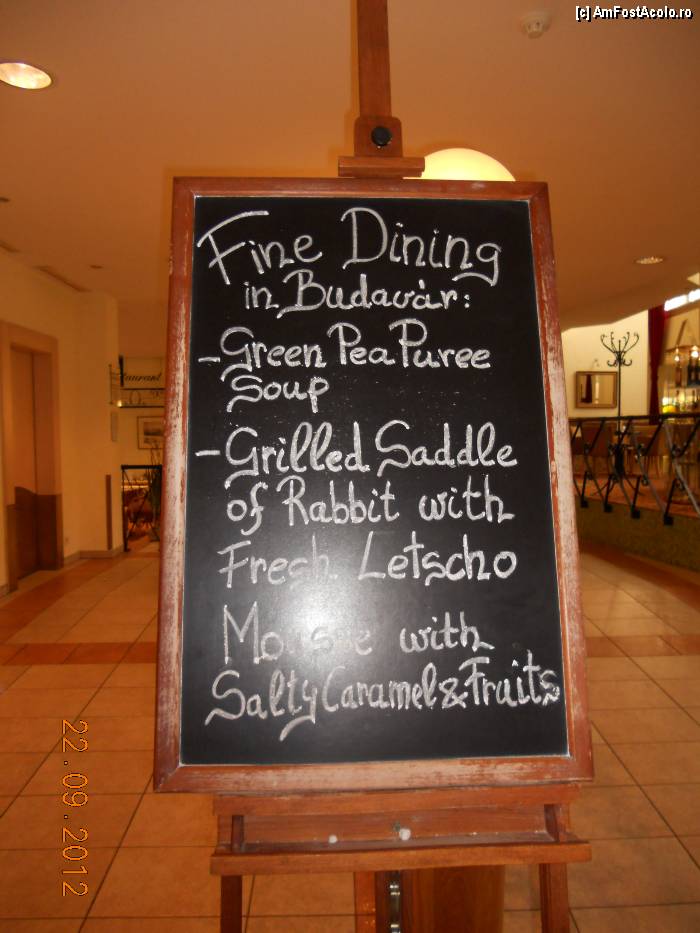 [c] AmFostAcolo.ro
Fine Dining
in Budavár:
- Green Pea Puree
Soup
- Grilled Saddle
of Rabbit with
Fresh Letscho
Mousse with
Salty Caramel & Fruits
22.09.2012